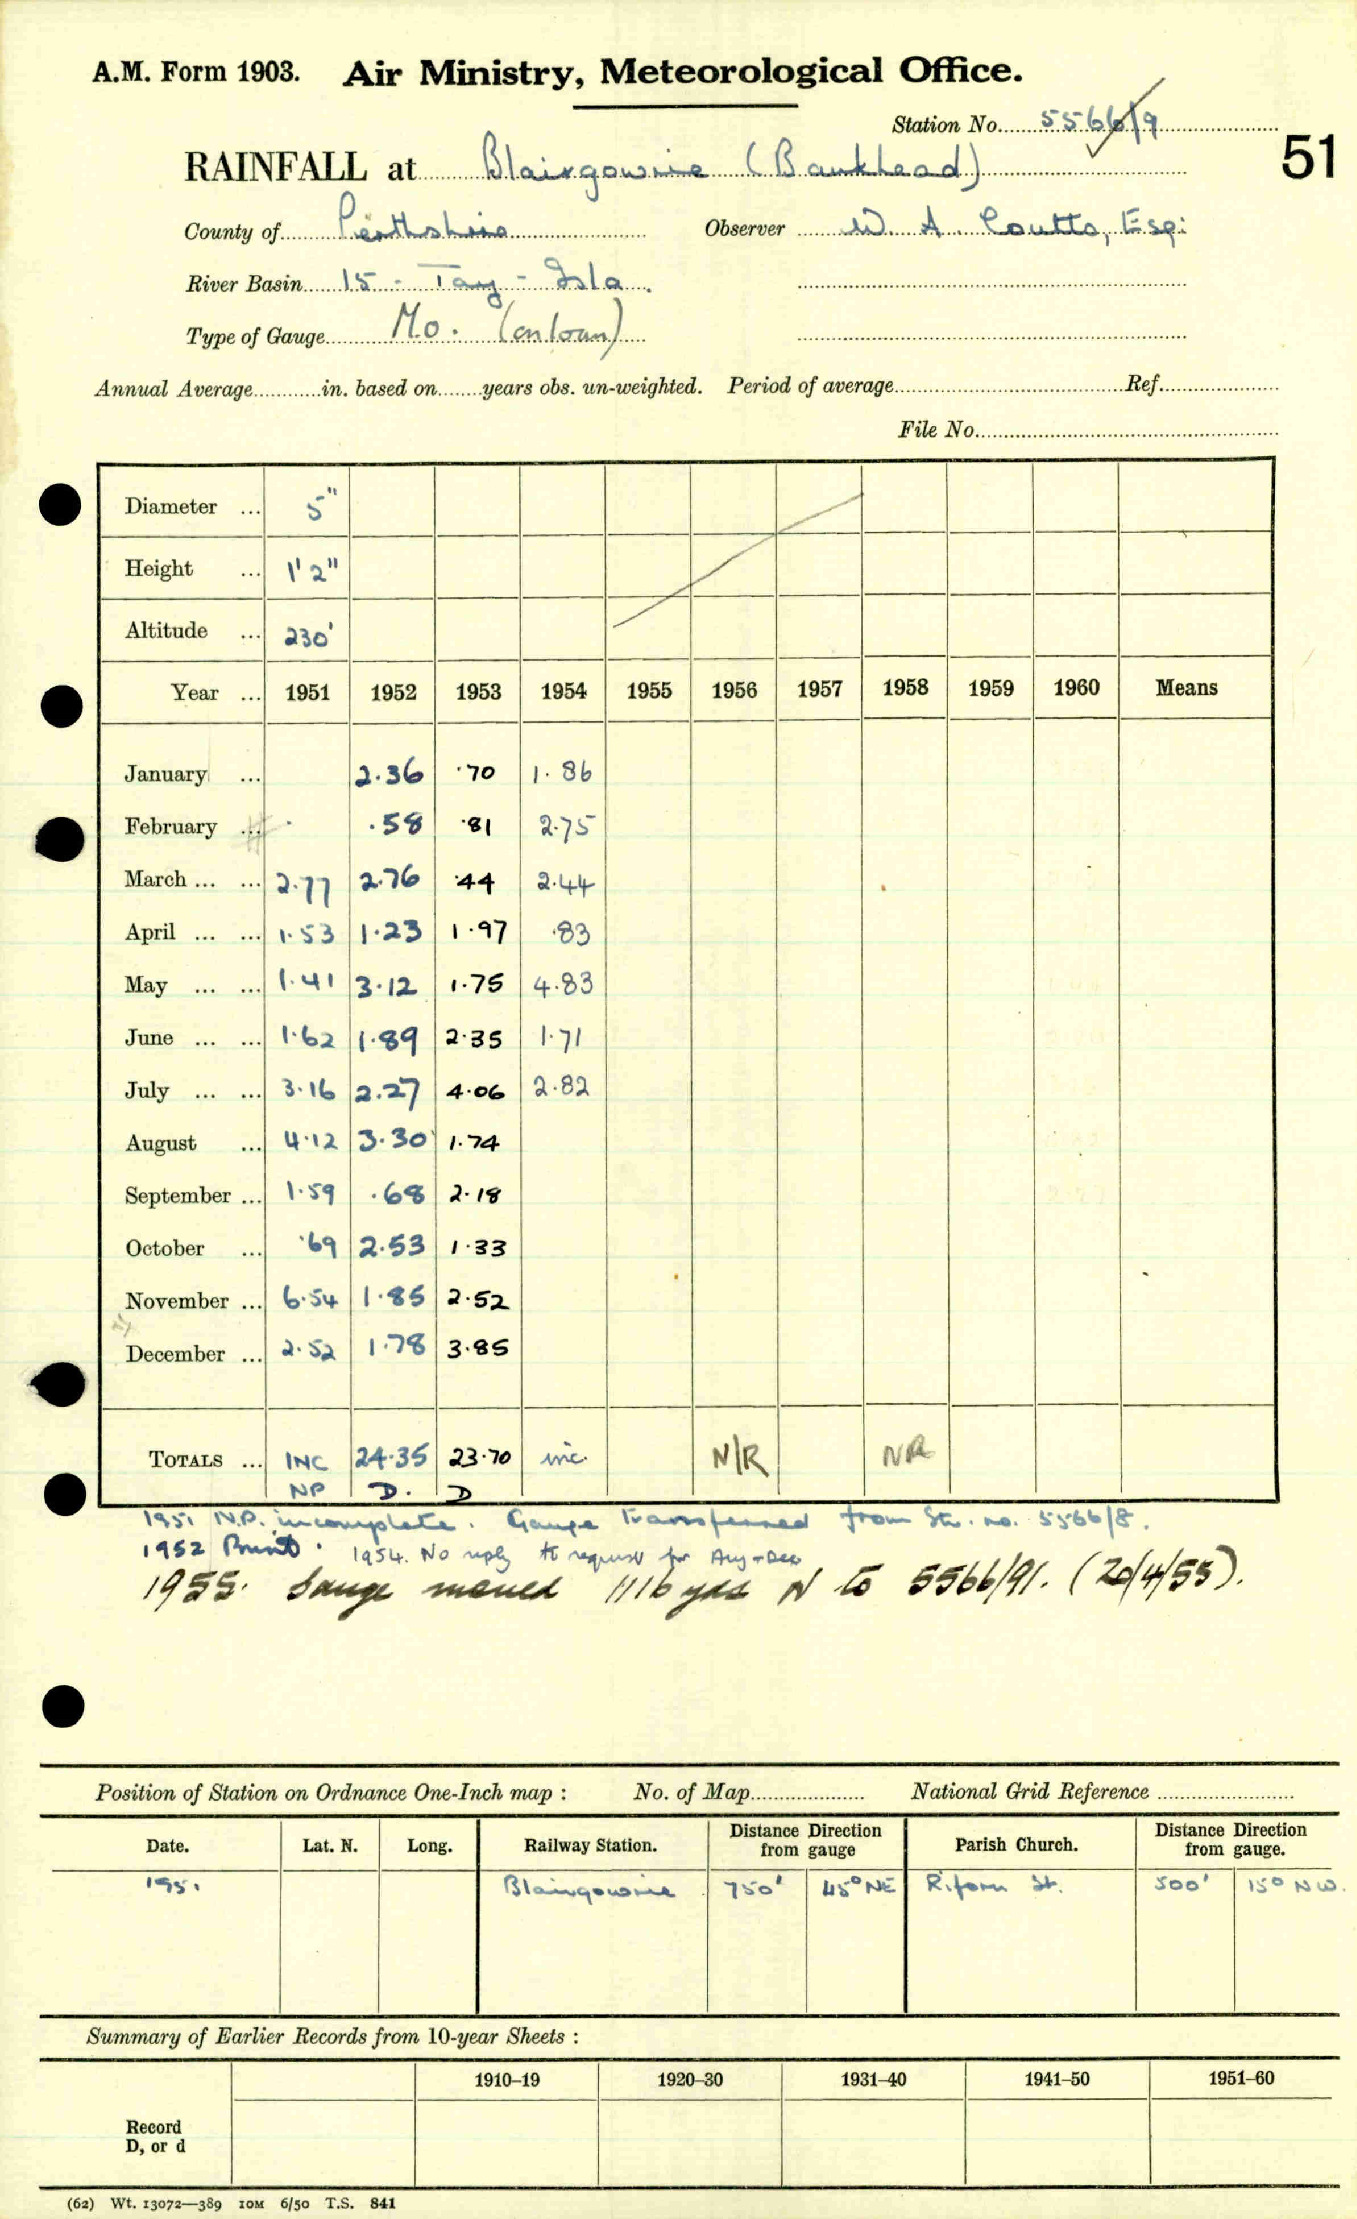 A.M. Form 1903. Air Ministry, Meteorological Office.
Station No. 5566/9
RAINFALL at Blairgowrie (Bankhead) 51
County of Perthshire Observer W. A. Coutts, Esq:
River Basin 15 - Tay - Isla.
Type of Gauge Mo. (on loan)
Annual Average in. based on years obs. un-weighted. Period of average Ref.
File No.
Diameter ... 5"
Height ... 1'2"
Altitude ... 230'
Year ... 1951 1952 1953 1954 1955 1956 1957 1958 1959 1960 Means
January ... 2.36 .70 1.86
February ... .58 .81 2.75
March ... ... 2.77 2.76 .44 2.44
April ... ... 1.53 1.23 1.97 .83
May ... ... 1.41 3.12 1.75 4.83
June ... ... 1.62 1.89 2.35 1.71
July ... ... 3.16 2.27 4.06 2.82
August ... 4.12 3.30 1.74
September ... 1.59 .68 2.18
October ... .69 2.53 1.33
November ... 6.54 1.85 2.52
December ... 2.52 1.78 3.85
TOTALS ... INC 24.35 23.70 inc. N/R NR
NP D. D
1951 N.P. incomplete. Gauge transferred from Stn. no. 5566/8.
1952 . 1954. No reply to request for Aug-Dec
1955. Gauge moved 1116 yds N to 5566/91. (20/4/55).
Position of Station on Ordnance One-Inch map : No. of Map National Grid Reference
Date. Lat. N. Long. Railway Station. Distance Direction from gauge Parish Church. Distance Direction from gauge.
1951 Blairgowrie 750' 45° NE St. 500' 15° NW.
Summary of Earlier Records from 10-year Sheets :
1910–19 1920–30 1931–40 1941–50 1951–60
Record
D, or d
(62) Wt. 13072—389 10M 6/50 T.S. 841